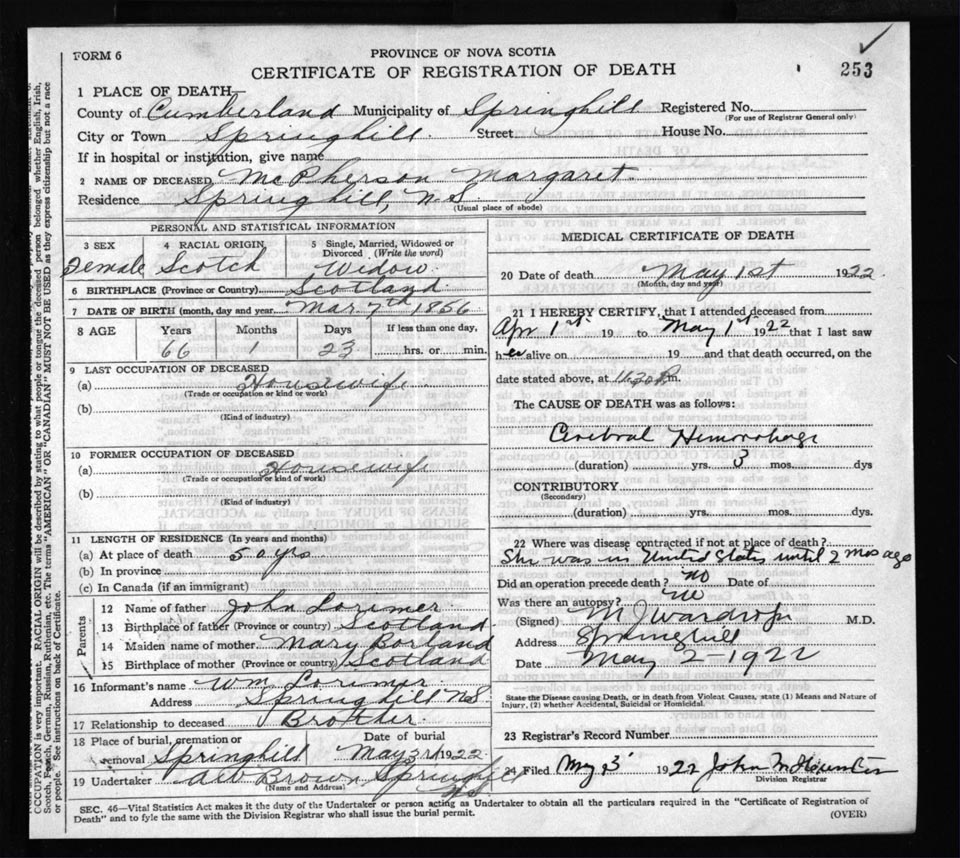 FORM 6
PROVINCE OF NOVA SCOTIA
CERTIFICATE OF REGISTRATION OF DEATH
253
1 PLACE OF DEATH—
County of Cumberland Municipality of Springhill Registered No.
(For use of Registrar General only)
City or Town Springhill. Street House No.
If in hospital or institution, give name
2 NAME OF DECEASED McPherson Margaret
Residence Springhill, N.S.
(Usual place of abode)
PERSONAL AND STATISTICAL INFORMATION
3 SEX 4 RACIAL ORIGIN 5 Single, Married, Widowed or Divorced (Write the word)
Female Scotch Widow.
6 BIRTHPLACE (Province or Country) Scotland
7 DATE OF BIRTH (month, day and year) Mar. 7th 1856
8 AGE Years Months Days If less than one day,
66 1 23 hrs. or min.
9 LAST OCCUPATION OF DECEASED
(a) Housewife
(Trade or occupation or kind of work)
(b)
(Kind of industry)
10 FORMER OCCUPATION OF DECEASED
(a) Housewife
(Trade or occupation or kind of work)
(b)
(Kind of industry)
11 LENGTH OF RESIDENCE (In years and months)
(a) At place of death 50 yrs
(b) In province
(c) In Canada (if an immigrant)
Parents
12 Name of father John Lorimer
13 Birthplace of father (Province or country) Scotland
14 Maiden name of mother Mary Borland
15 Birthplace of mother (Province or country) Scotland
16 Informant's name Wm Lorimer
Address Springhill N.S.
17 Relationship to deceased Brother.
18 Place of burial, cremation or removal Springhill Date of burial May 3rd 1922.
19 Undertaker Brown Springhill N.S.
(Name and Address)
MEDICAL CERTIFICATE OF DEATH
20 Date of death May 1st 1922
(Month, day and year)
21 I HEREBY CERTIFY, that I attended deceased from
Apr 1st 19 to May 1st 1922 that I last saw
her alive on 19 and that death occurred, on the
date stated above, at m.
The CAUSE OF DEATH was as follows:
Cerebral Hemorrhage
(duration) yrs. 3 mos. dys
CONTRIBUTORY
(Secondary)
(duration) yrs. mos. dys.
22 Where was disease contracted if not at place of death?
She was in United States until 2 mos ago
Did an operation precede death? no Date of
Was there an autopsy? no
(Signed) M J Wardrope M.D.
Address Springhill
Date May 2-1922
State the Disease causing Death, or in death from Violent Causes, state (1) Means and Nature of
Injury, (2) whether Accidental, Suicidal or Homicidal.
23 Registrar's Record Number
24 Filed May 3 1922 John
Division Registrar
SEC. 46—Vital Statistics Act makes it the duty of the Undertaker or person acting as Undertaker to obtain all the particulars required in the "Certificate of Registration of
Death" and to fyle the same with the Division Registrar who shall issue the burial permit.
(OVER)
OCCUPATION is very important. RACIAL ORIGIN will be described by stating to what people or tongue the deceased person belonged whether English, Irish,
Scotch, French, German, Russian, Ruthenian, etc. The terms "AMERICAN" OR "CANADIAN" MUST NOT BE USED as they express citizenship but not a race
or people. See instructions on back of Certificate.